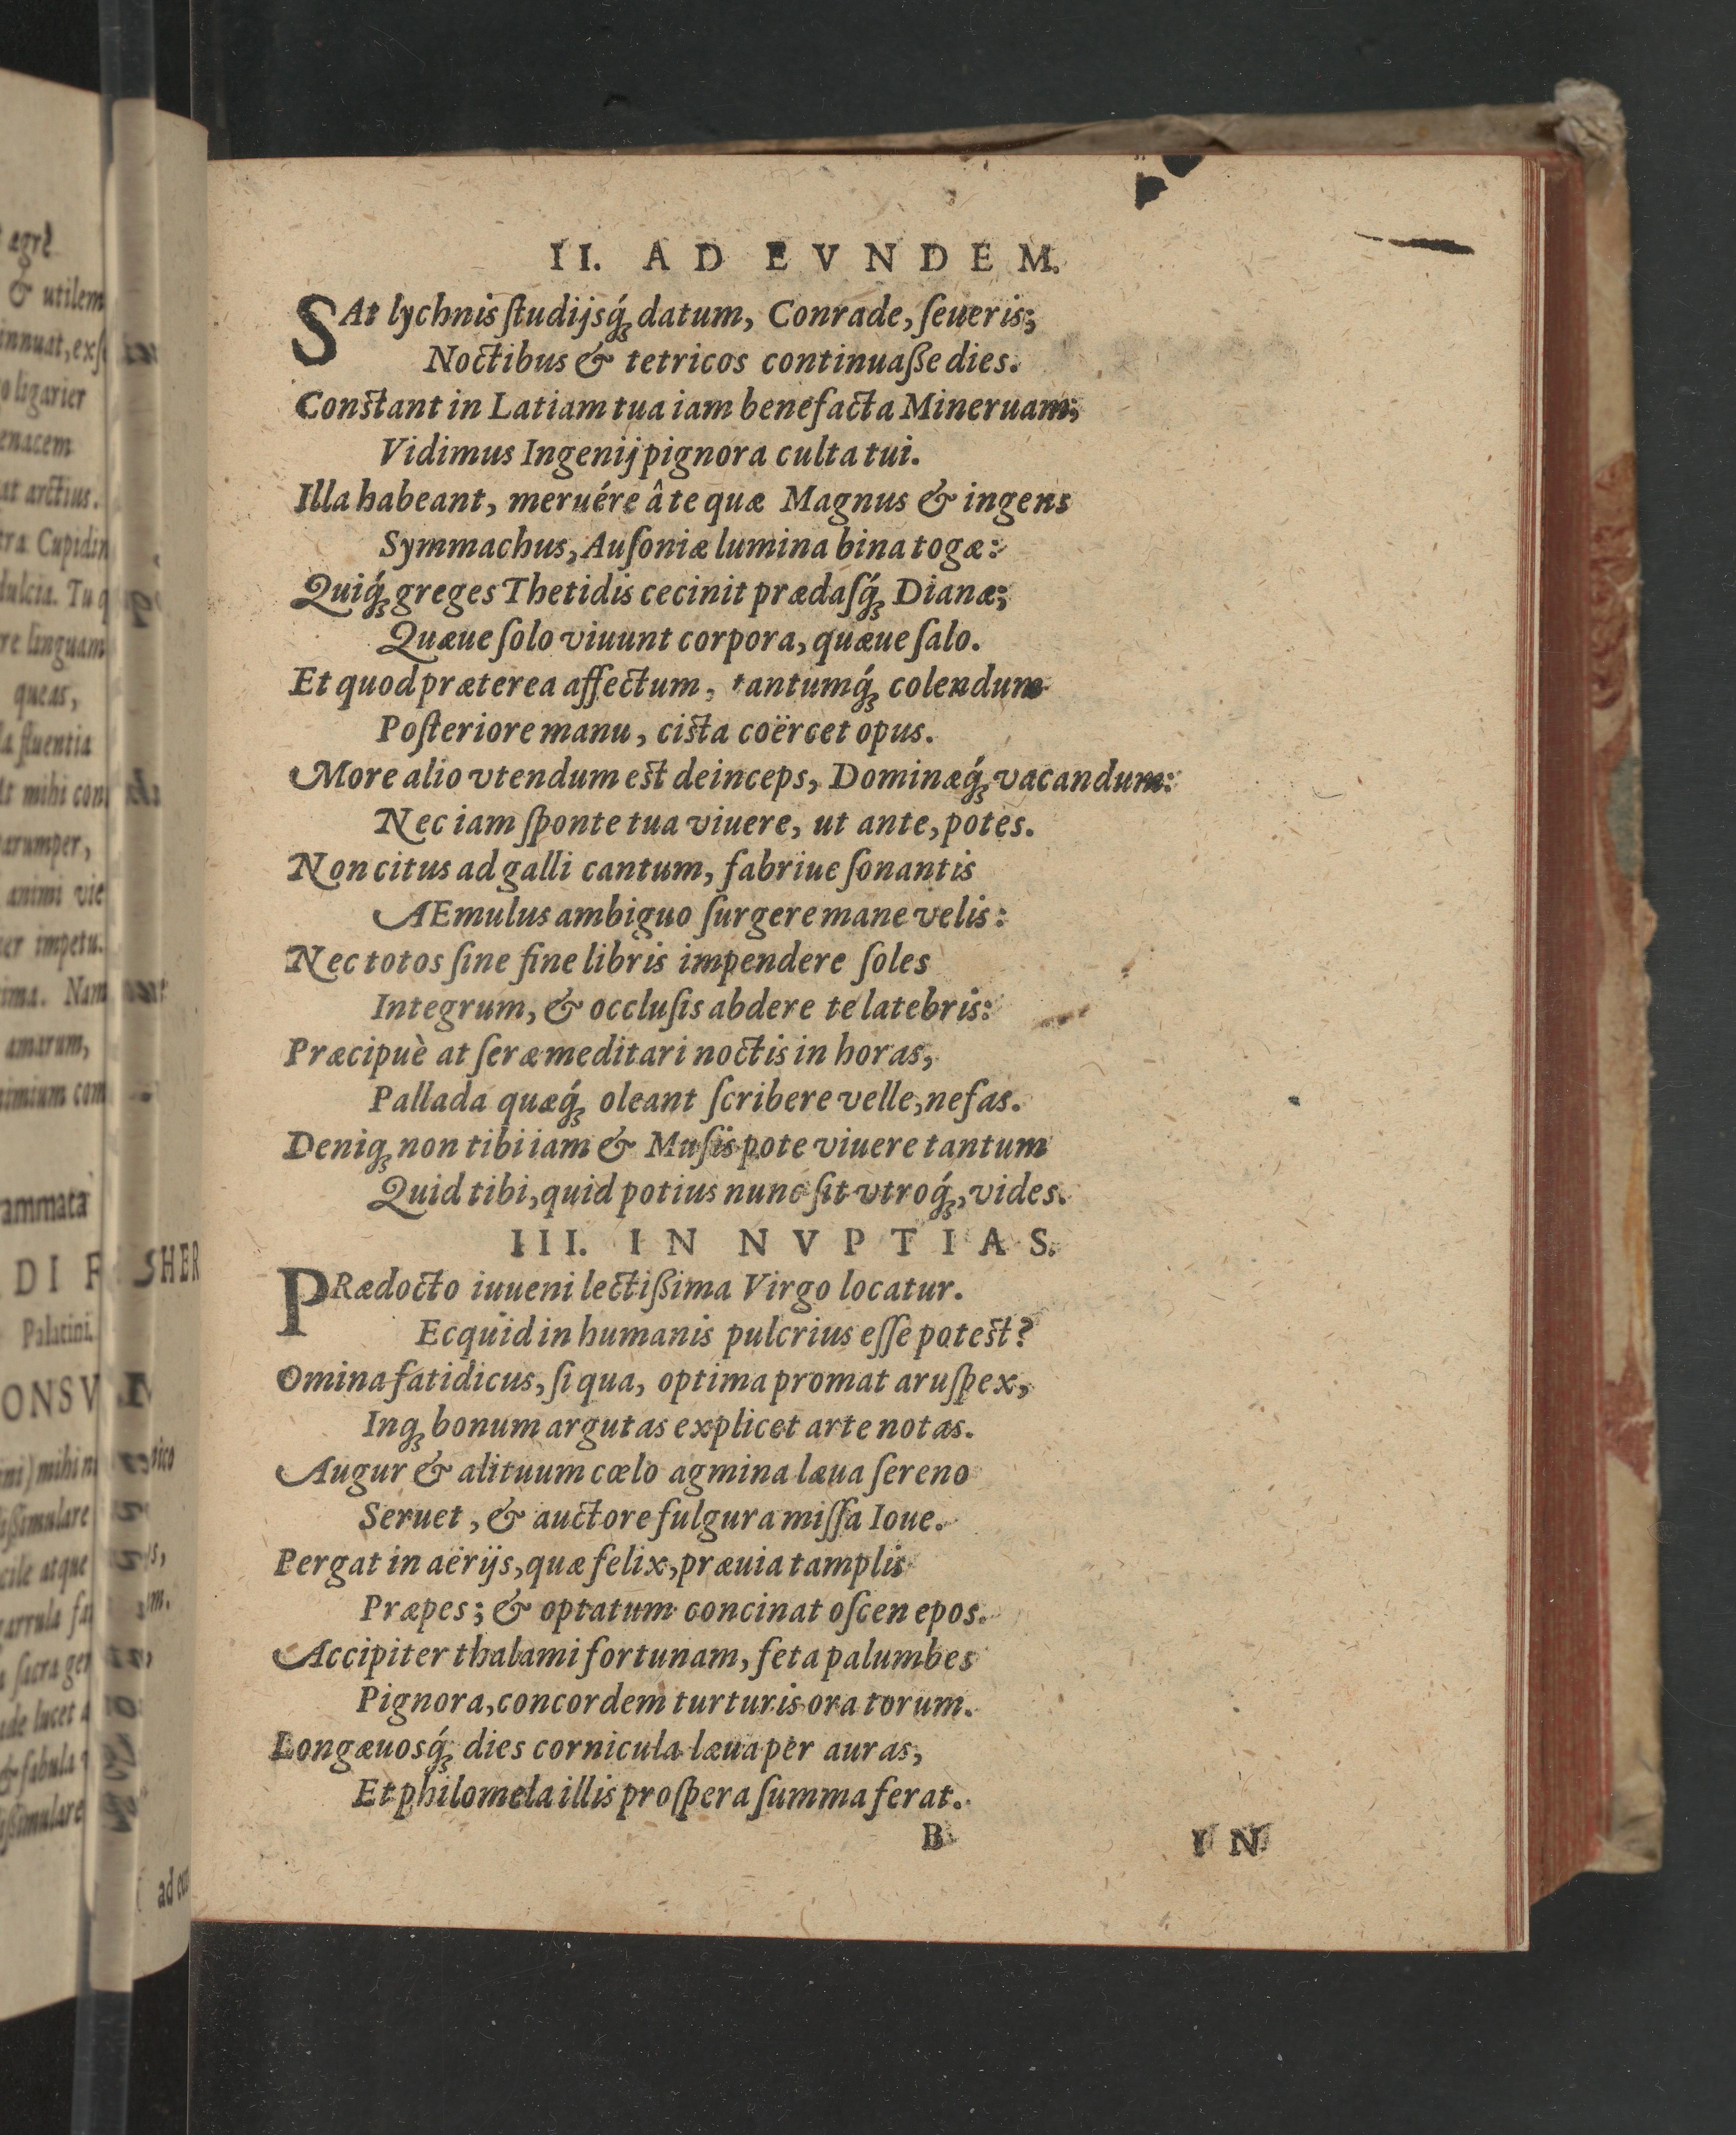 II. AD EVNDEM.
SAt lychnis ſtudijsq́ꝫ datum, Conrade, ſeueris;
Noctibus & tetricos continuaße dies.
Constant in Latiam tua iam benefacta Mineruam;
Vidimus Ingenij pignora culta tui.
Illa habeant, meruére â te quæ Magnus & ingens
Symmachus, Auſoniæ lumina bina togæ:
Quiq́ꝫ greges Thetidis cecinit prædaſq́ꝫ Dianæ;
Quæue ſolo viuunt corpora, quæue ſalo.
Et quod præterea affectum, tantumq́ꝫ colendum
Poſteriore manu, cista coërcet opus.
More alio vtendum est deinceps, Dominæq́ꝫ vacandum:
Nec iam ſponte tua viuere, ut ante, potes.
Non citus ad galli cantum, fabriue ſonantis
AEmulus ambiguo ſurgere mane velis:
Nec totos ſine fine libris impendere ſoles
Integrum, & occluſis abdere te latebris:
Præcipuè at ſeræ meditari noctis in horas,
Pallada quæq́ꝫ oleant ſcribere velle, nefas.
Deniqꝫ non tibi iam & Muſis pote viuere tantum
Quid tibi, quid potius nunc ſit vtroq́ꝫ, vides.
III. IN NVPTIAS.
PRædocto iuueni lectißima Virgo locatur.
Ecquid in humanis pulcrius eſſe potest?
Omina fatidicus, ſi qua, optima promat aruſpex,
Inqꝫ bonum argutas explicet arte notas.
Augur & alituum cœlo agmina læua ſereno
Seruet, & auctore fulgura miſſa Ioue.
Pergat in aërijs, quæ felix, præuia tamplis
Præpes; & optatum concinat oſcen epos.
Accipiter thalami fortunam, feta palumbes
Pignora, concordem turturis ora torum.
Longæuosq́ꝫ dies cornicula læua per auras,
Et philomela illis proſpera ſumma ferat.
B IN